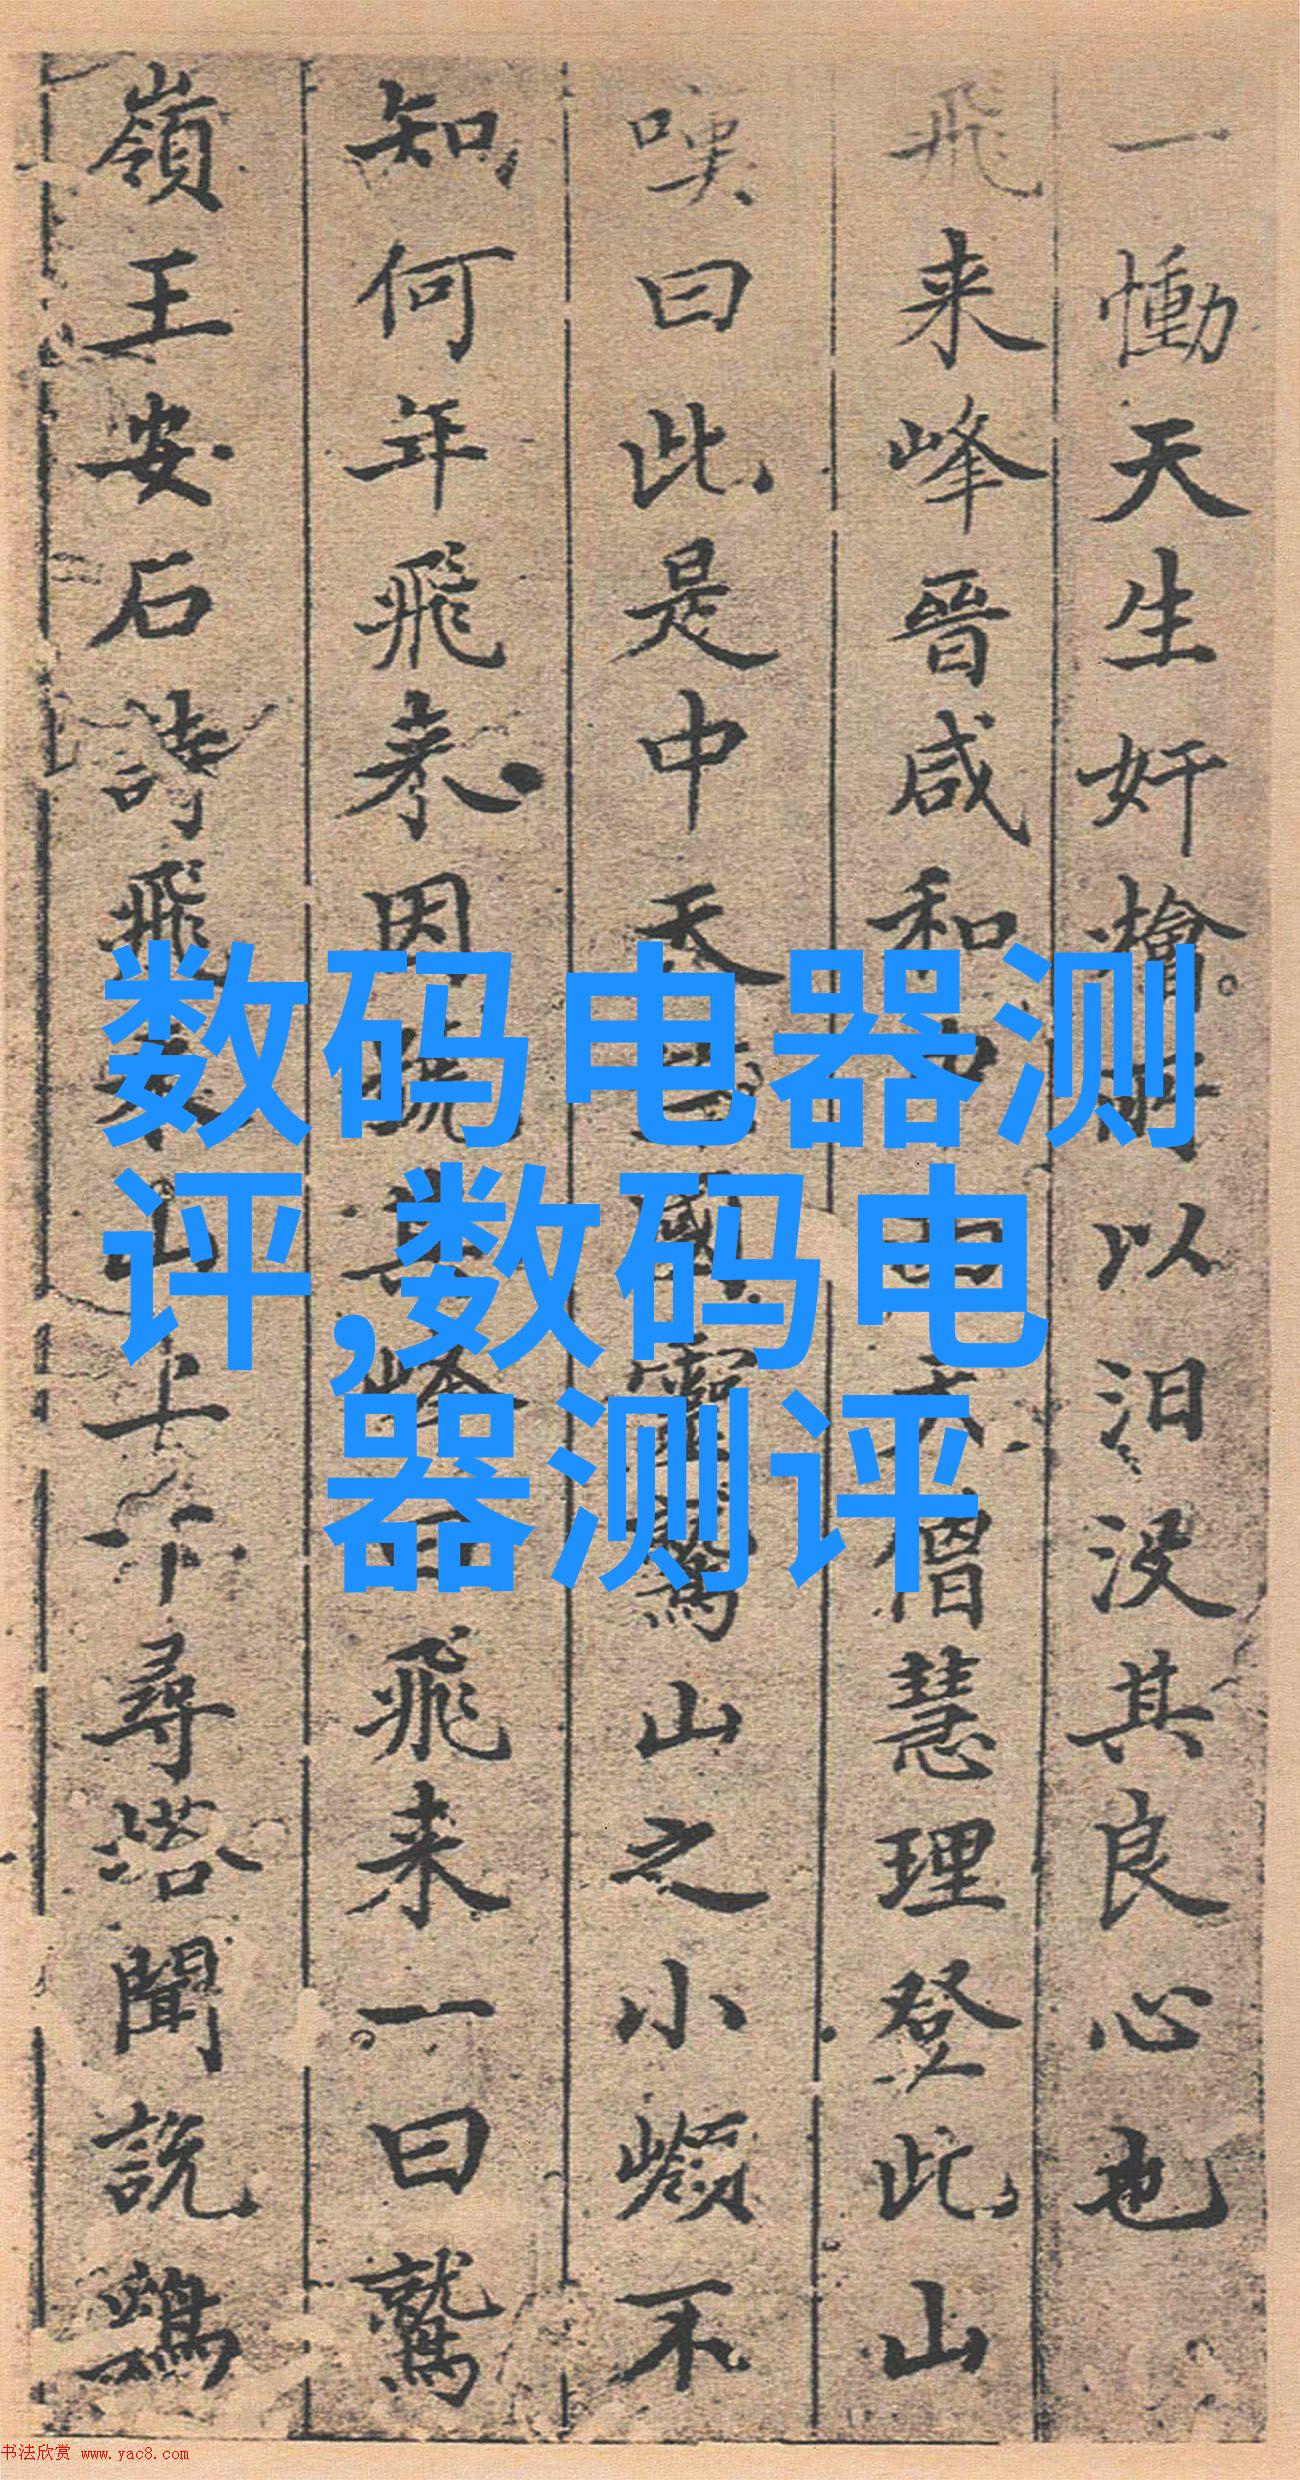 一慟天生奸檜所以汨没其良心也
飛来峰晉咸和
僧慧理登此山
嘆曰此是中天
國靈鷲山之小嶺不
知何年飛來因
飛来一曰鷲
嶺王安石詩飛来山上千尋塔聞説鷄
数码电器测
评,数码电
器测评
书法欣赏 www.yac8.com